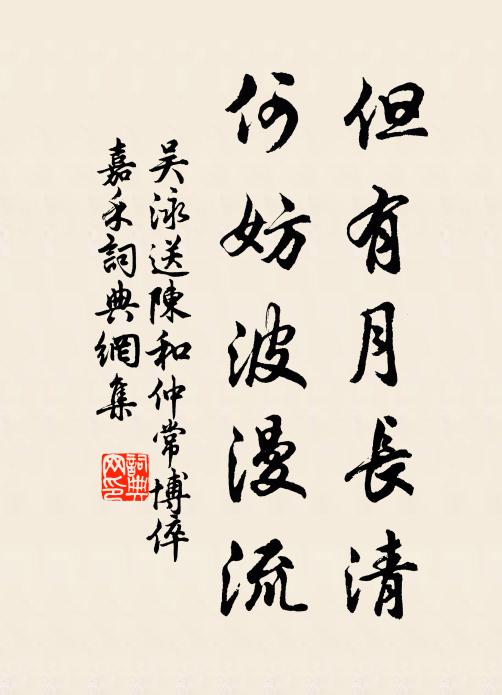 但有月長清
何妨波漫流
吴泳送陳和仲常博倅
嘉禾詞典網集
詞典网印